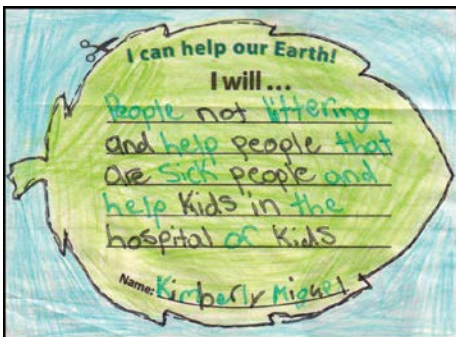 I can help our Earth!
I will ...
People not littering
and help people that
are Sick people and
help Kids in the
hospital of Kids
Name: Kimberly Miguel